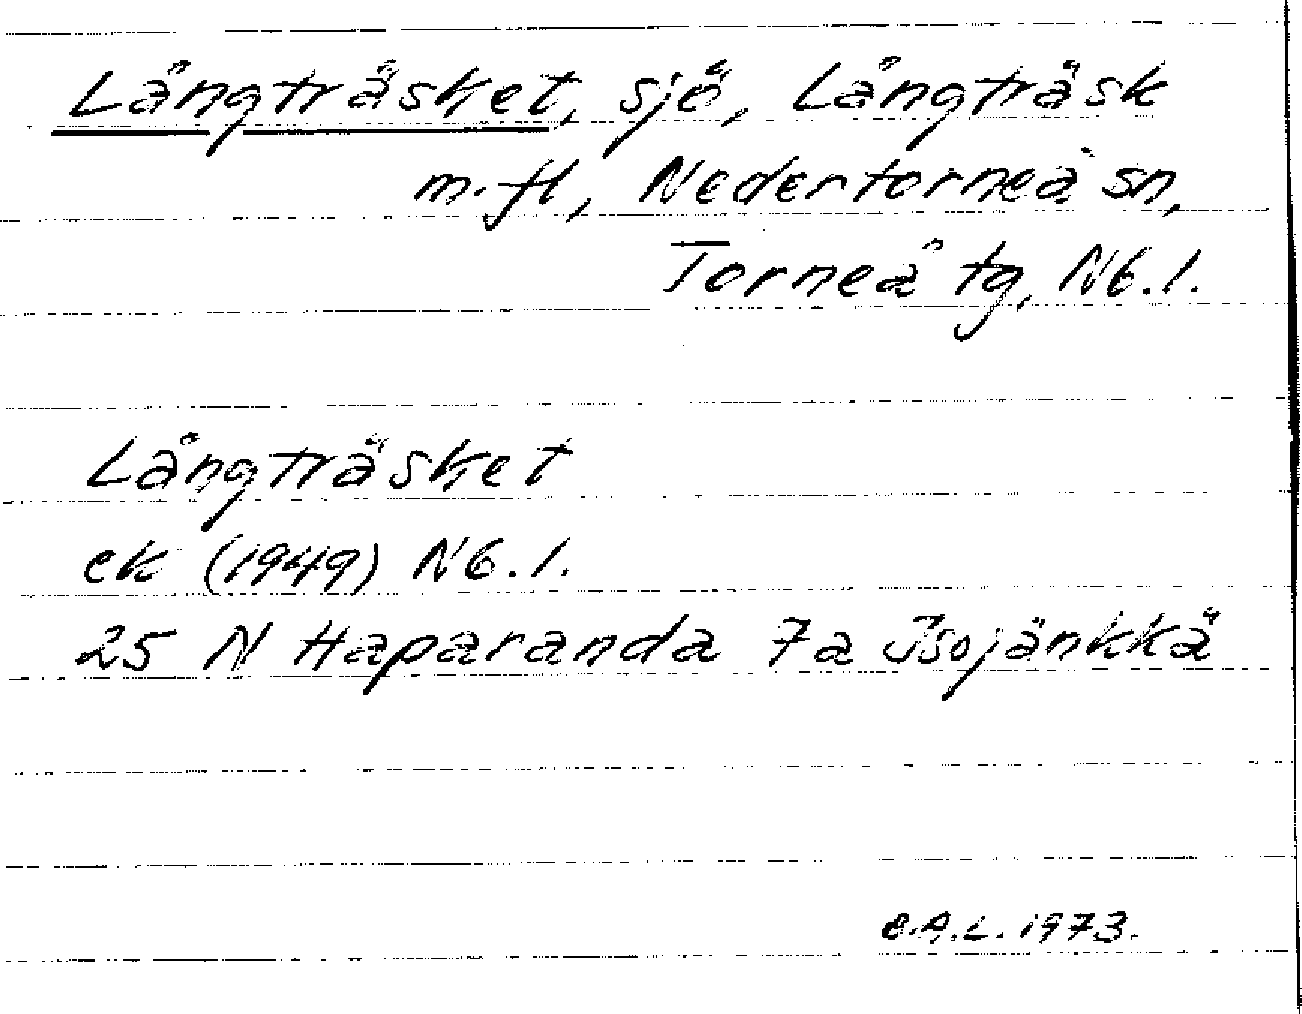 Långträsket, sjö, Långträsk
m.fl, Nedertorneå sn,
Torneå tg, N6.1.
Långträsket
ek (1949) N6.1.
25 N Haparanda 7a Isojänkkä
E.A.L. 1973.